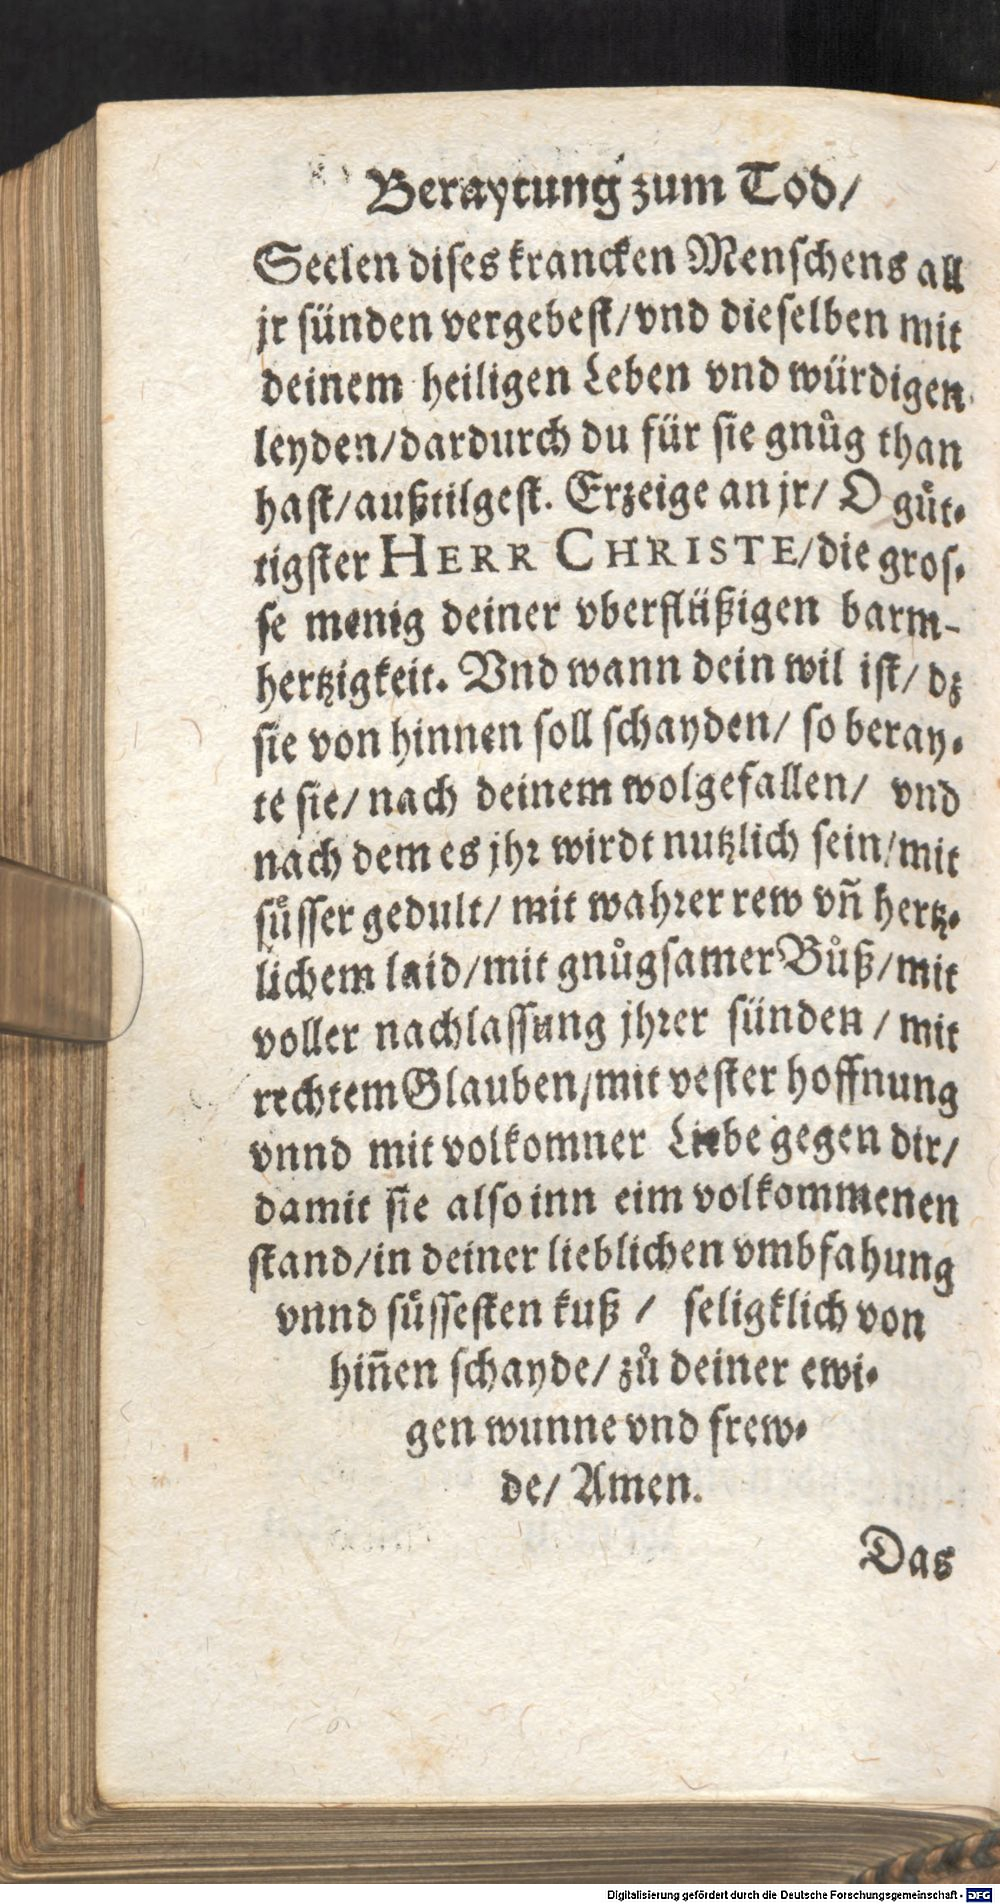 Beraytung zum Tod/
Seelen dises krancken Menschens all
jr sünden vergebest/vnd dieselben mit
deinem heiligen Leben vnd würdigen
leyden/dardurch du für sie gnůg than
hast/außtilgest. Erzeige an jr/ O gůt-
tigster HERR CHRISTE/die gros-
se menig deiner vberflüßigen barm-
hertzigkeit. Vnd wann dein wil ist/ dz
sie von hinnen soll schayden/ so beray-
te sie/ nach deinem wolgefallen/ vnd
nach dem es jhr wirdt nutzlich sein/mit
sůsser gedult/ mit wahrer rew vñ hertz-
lichem laid/mit gnůgsamer Bůß/mit
voller nachlassung jhrer sünden / mit
rechtem Glauben/mit vester hoffnung
vnnd mit volkomner Liebe gegen dir/
damit sie also inn eim volkommenen
stand/in deiner lieblichen vmbfahung
vnnd sůssesten kuß / seligklich von
hiñen schayde/ zů deiner ewi-
gen wunne vnd frew-
de/ Amen.
Das
Digitalisierung gefördert durch die Deutsche Forschungsgemeinschaft - DFG